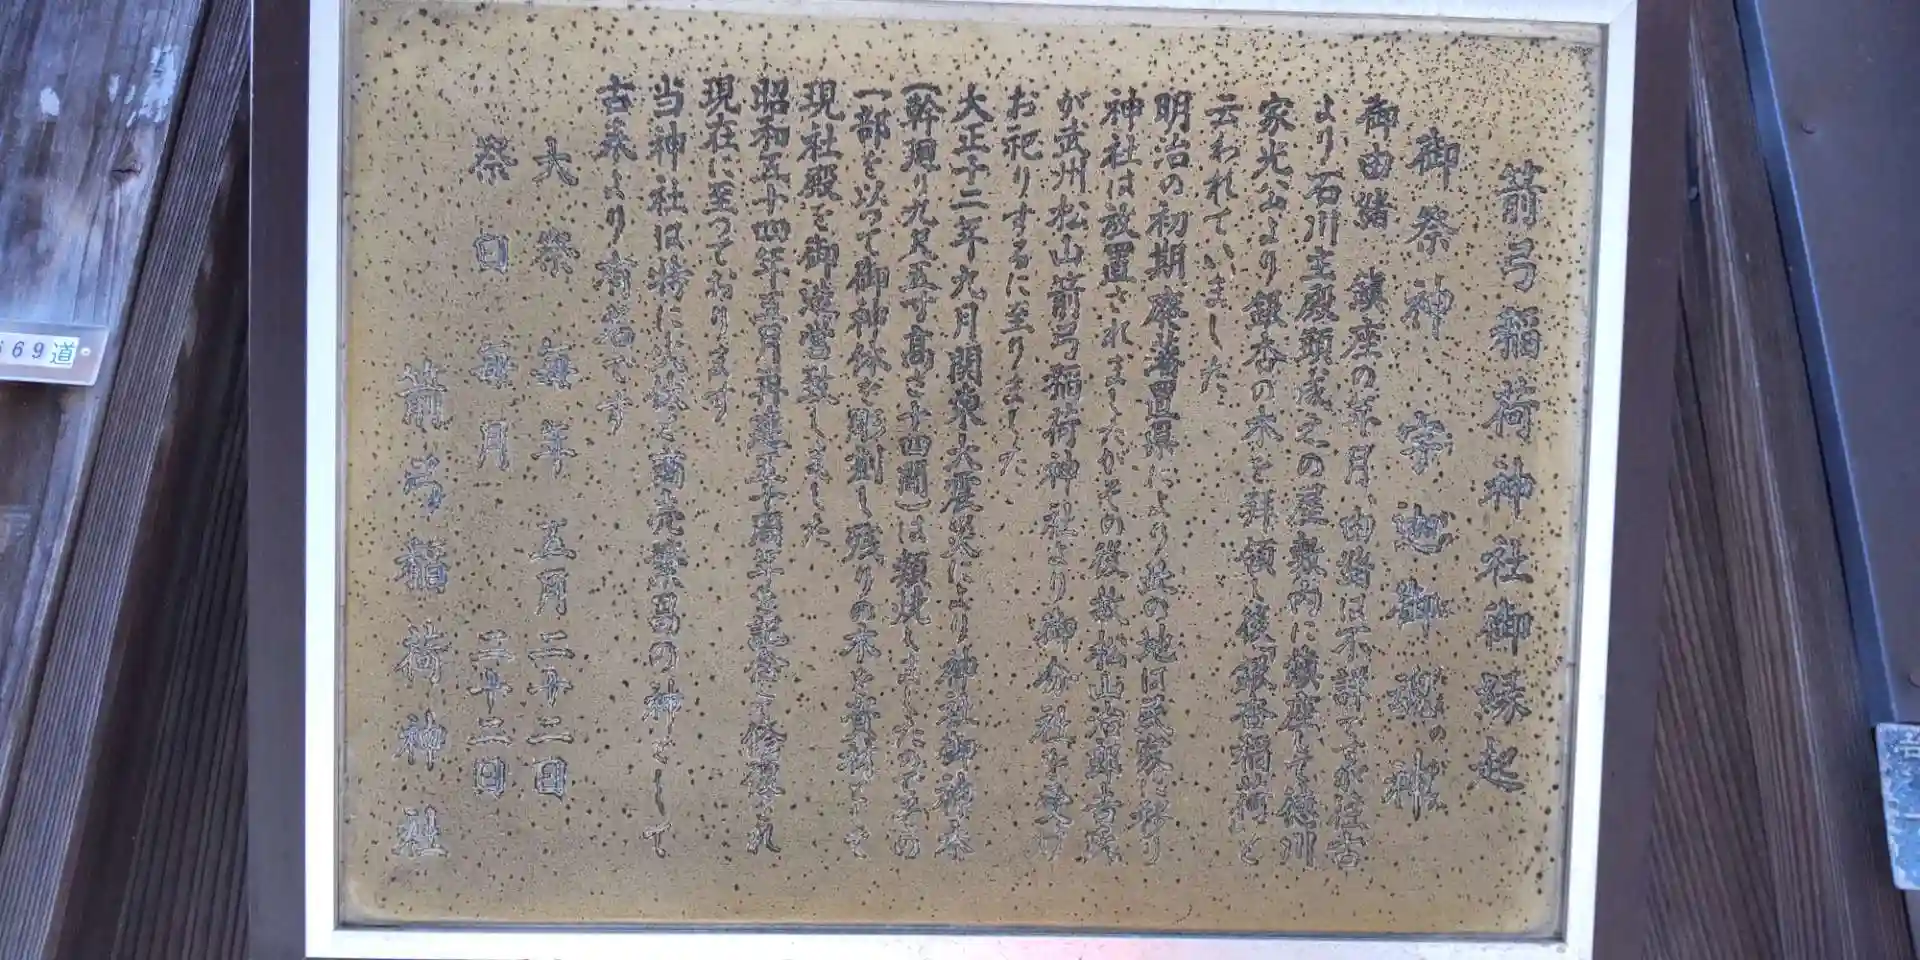 箭弓稲荷神社御縁起
御祭神 宇迦御魂の神
御由緒 鎮座の年月、由緒は不詳ですが往古
より石川主殿頭成之の屋敷内に鎮座して徳川
家光公より銀杏の木を拝領し後「銀杏稲荷」と
云われていました
明治の初期廃藩置県により此の地は民家に移り
神社は放置されましたがその後故松山治郎吉氏
が武州松山箭弓稲荷神社より御分社を受け
お祀りするに至りました
大正十二年九月関東大震災により神社御神木
(幹廻り九尺五寸高さ十四間)は類焼しましたのでその
一部を以って御神体を彫刻し残りの木を資材として
現社殿を御造営致しました
昭和五十四年五月再建五十周年を記念と修復され
現在に至っております
当神社は特に火伏と商売繁昌の神として
古来より有名です
大祭 毎年 五月二十二日
祭日 毎月 二十二日
箭弓稲荷神社
69道